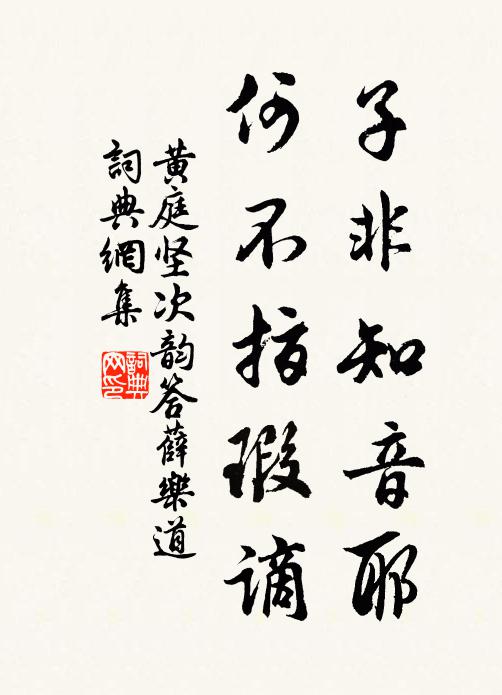 子非知音耶
何不指瑕謫
黄庭坚次韵答薛樂道
詞典網集
詞典网印